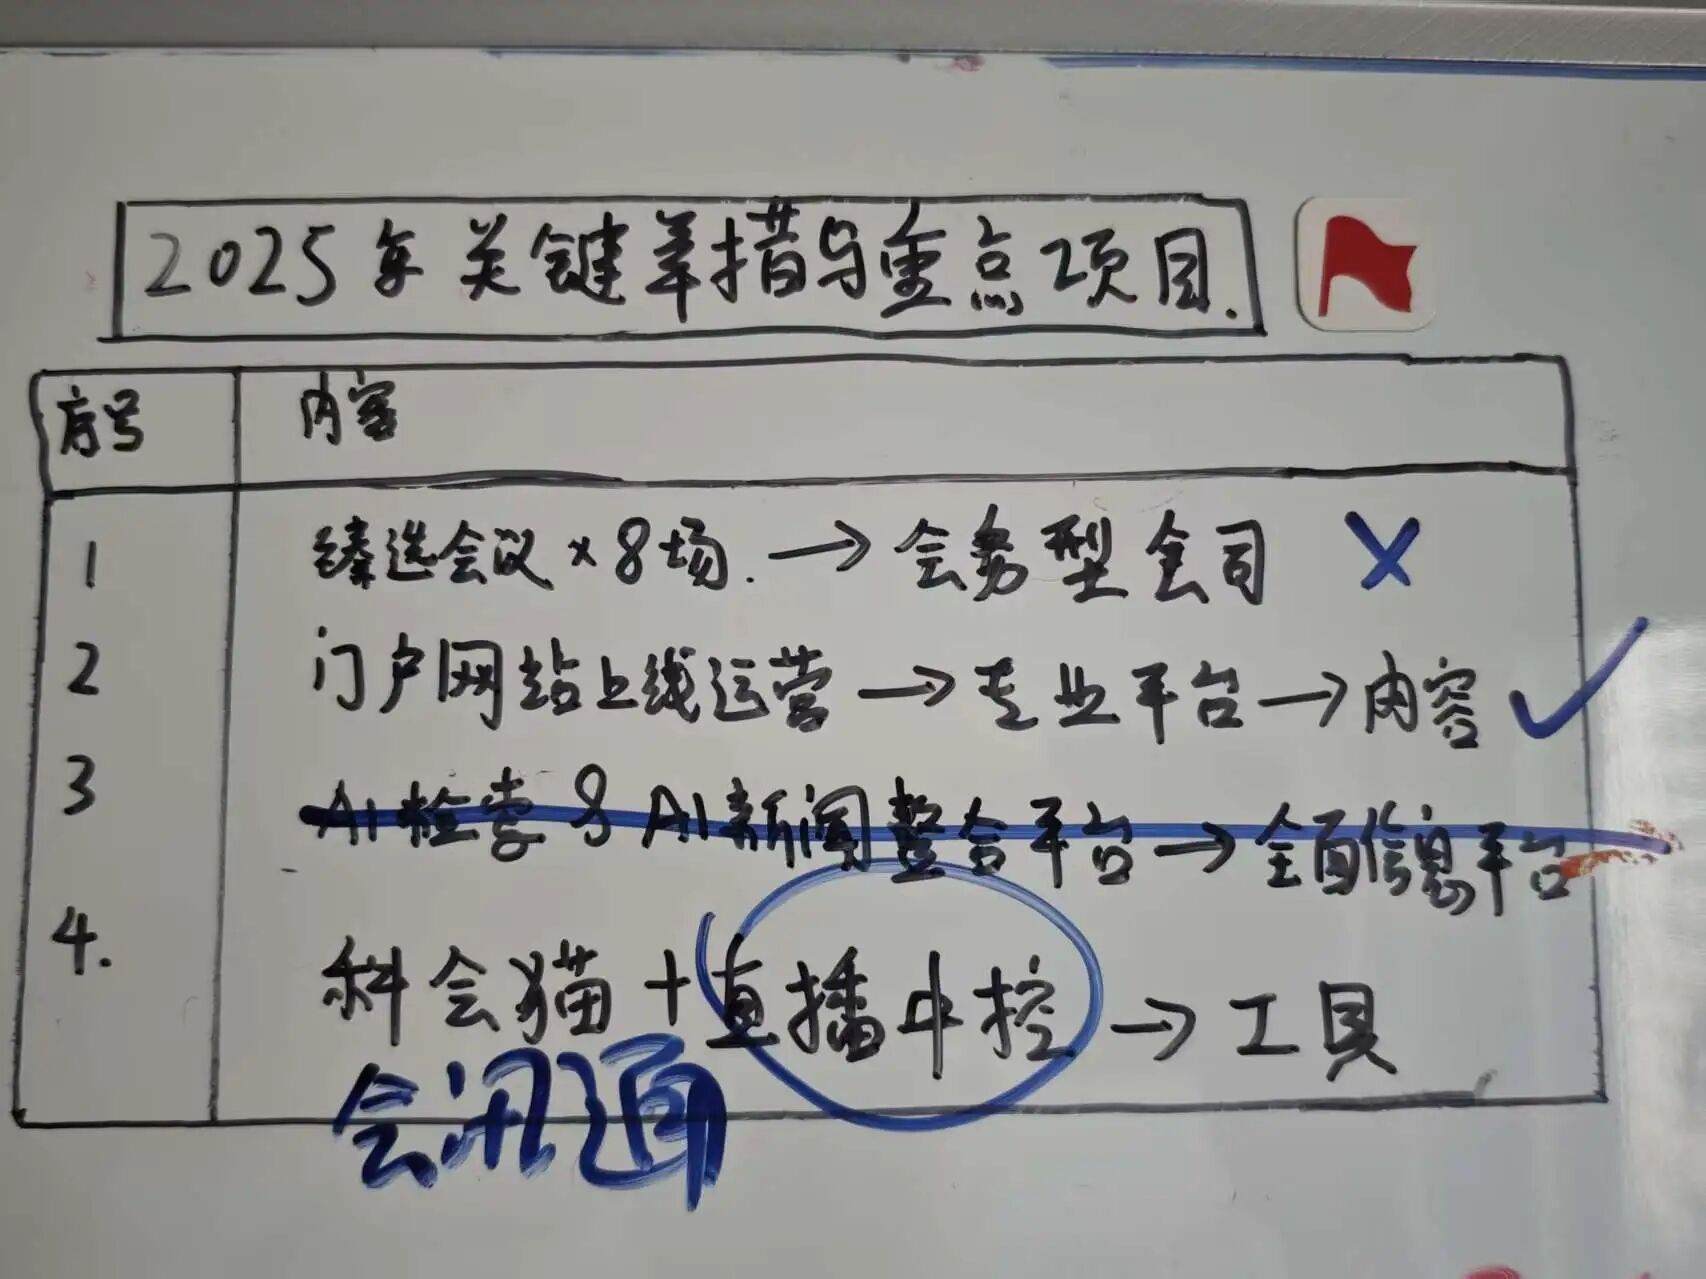 2025年关键举措与重点项目.
序号 内容
1 臻选会议×8场. → 会务型公司 ×
2 门户网站上线运营 → 专业平台 → 内容 ✓
3 AI检索&AI新闻整合平台 → 全面信息平台
4. 科会猫+直播中控 → 工具
会讯通